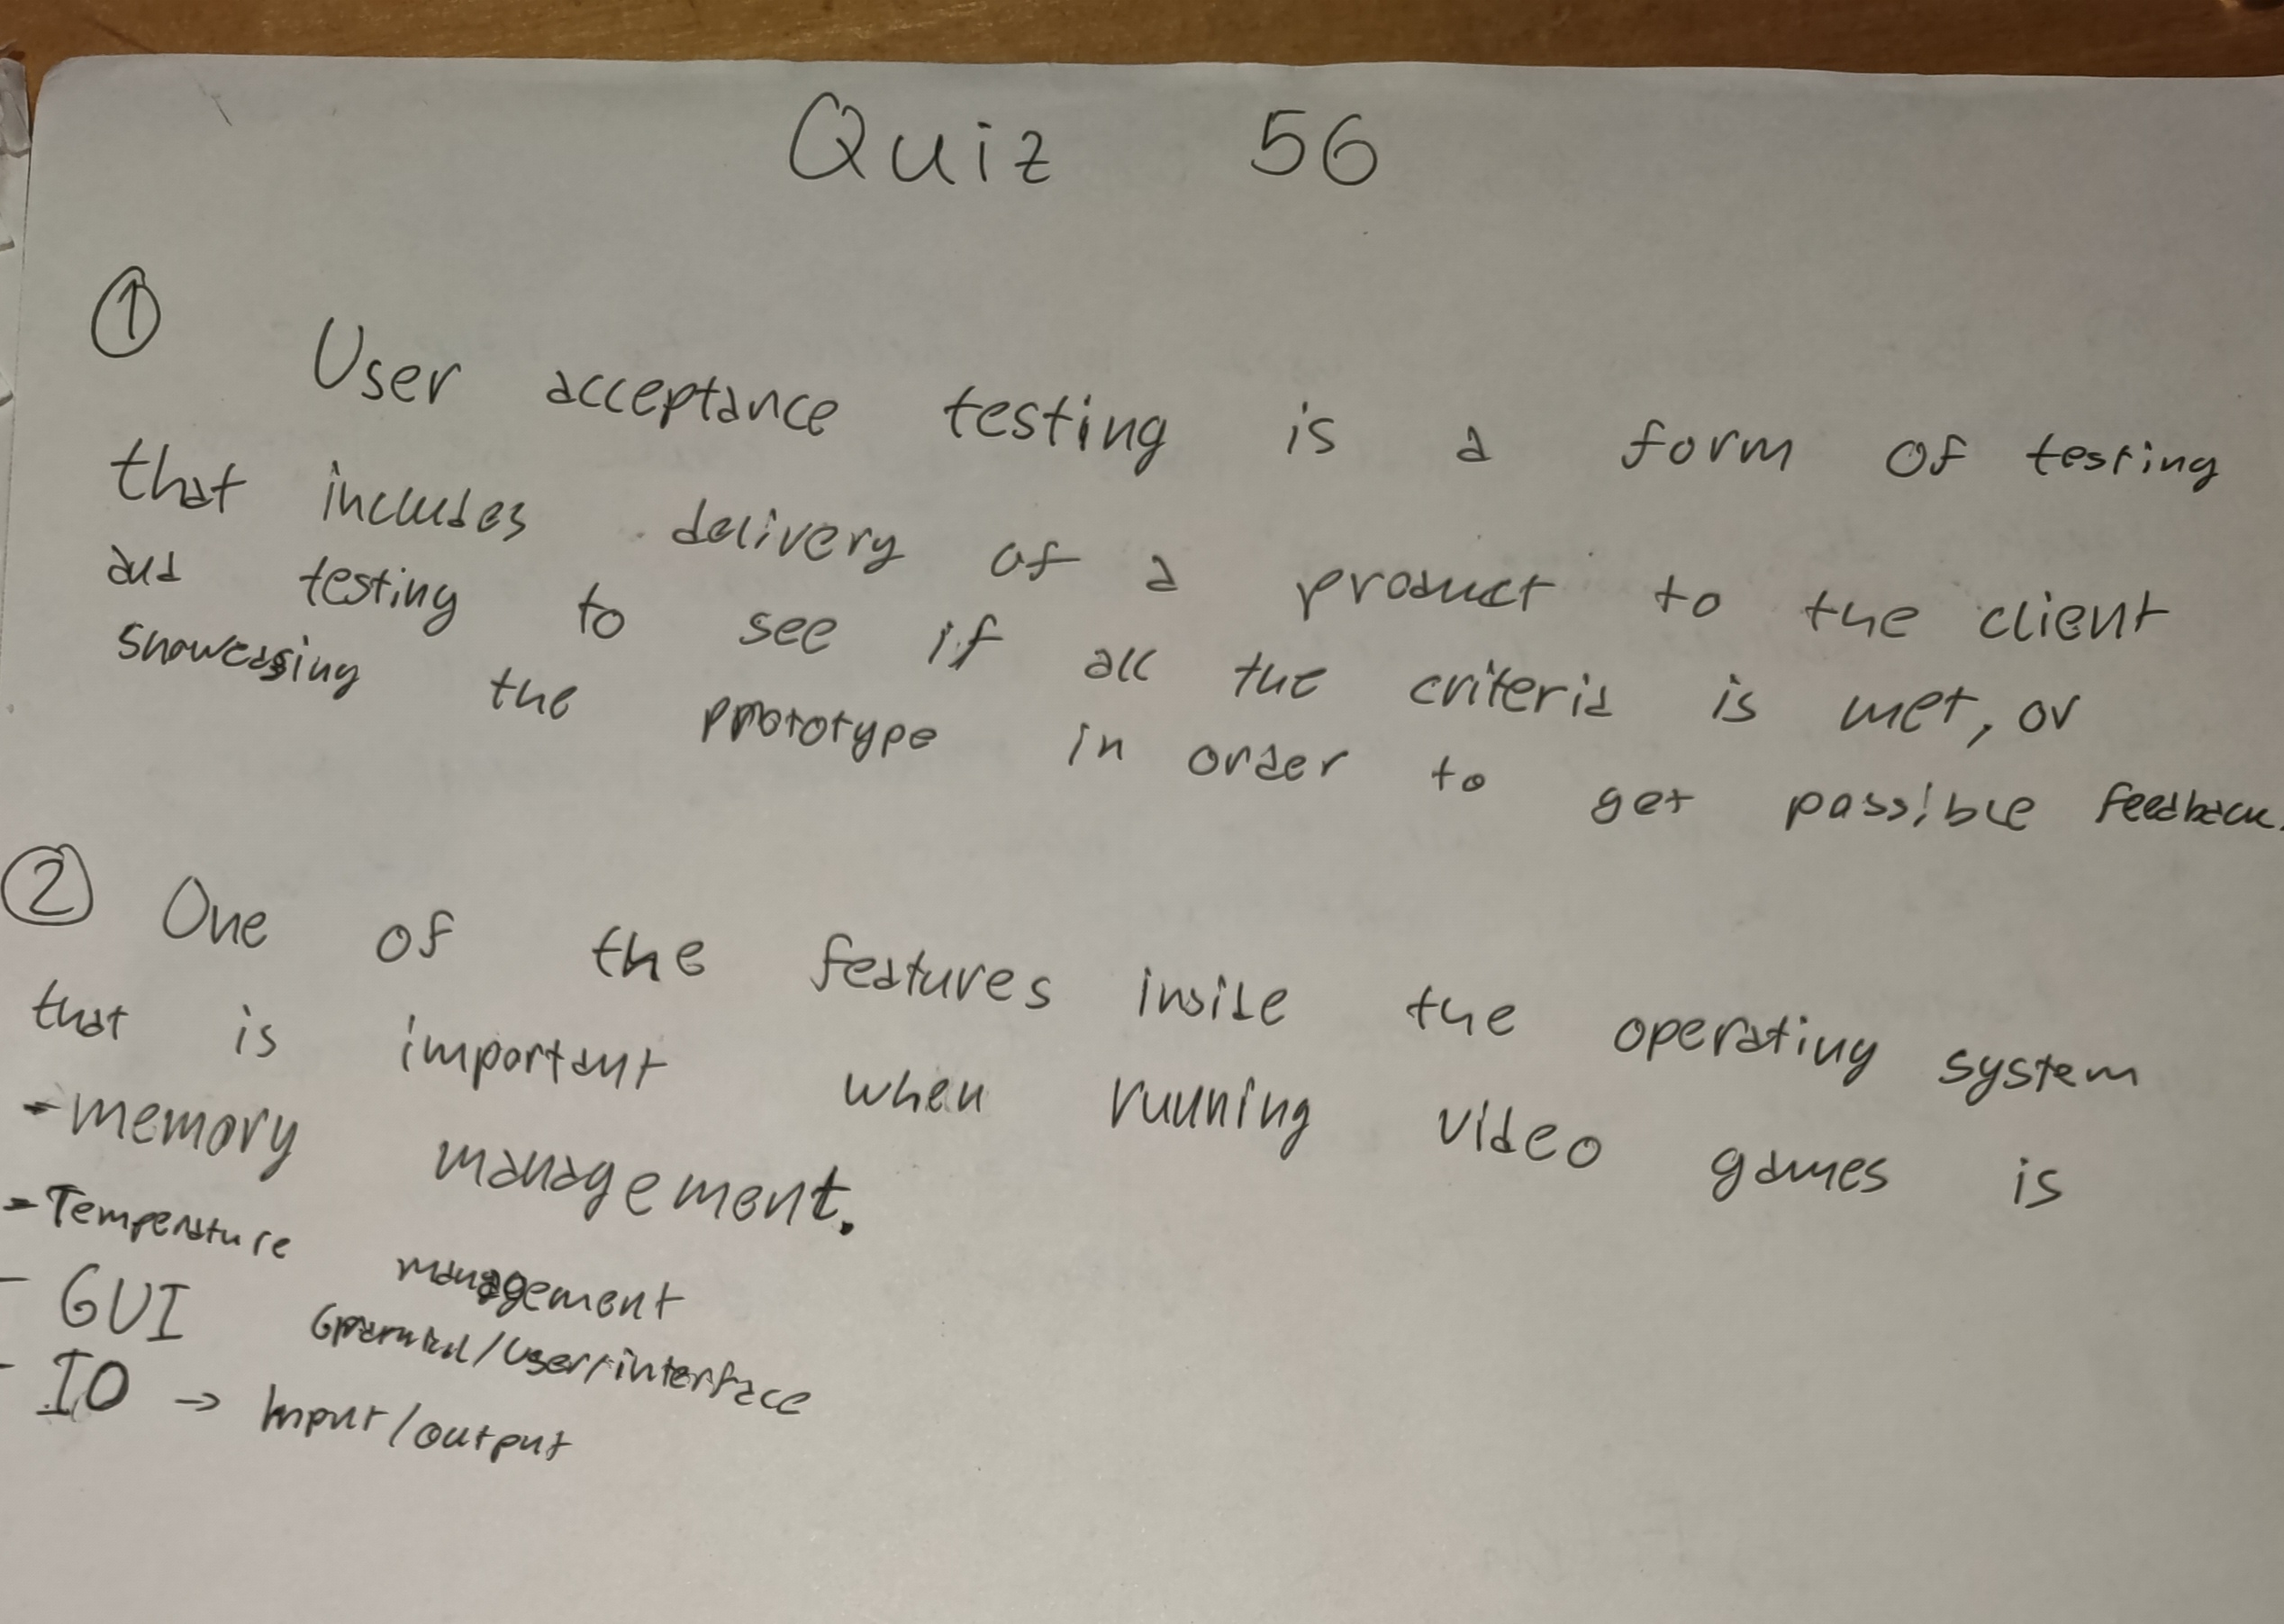 Quiz 56
① User acceptance testing is a form of testing
that includes delivery of a product to the client
and testing to see if all the criteria is met, or
showcasing the prototype in order to get possible feedback.
② One of the features inside the operating system
that is important when running video games is
- memory management.
- Temperature management
- GUI /User/interface
- IO → Input/output